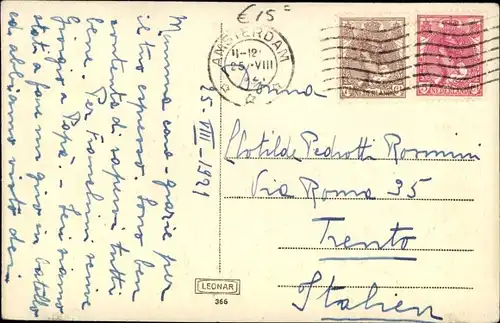 € 15=
AMSTERDAM
11-12
25 VIII
NEDERLAND
NEDERLAND
Mamma cara - grazie per
il tuo espresso. Sono ben
contenta di sapervi tutti
bene. Per Franchini serve
Giorgio e Papà. - Ieri siamo
stati a fare un giro in batello
ed abbiamo visto dei
25-VIII-1921
Clotilde Pedrotti Rosmini
Via Roma 35
Trento
Italien
LEONAR
366